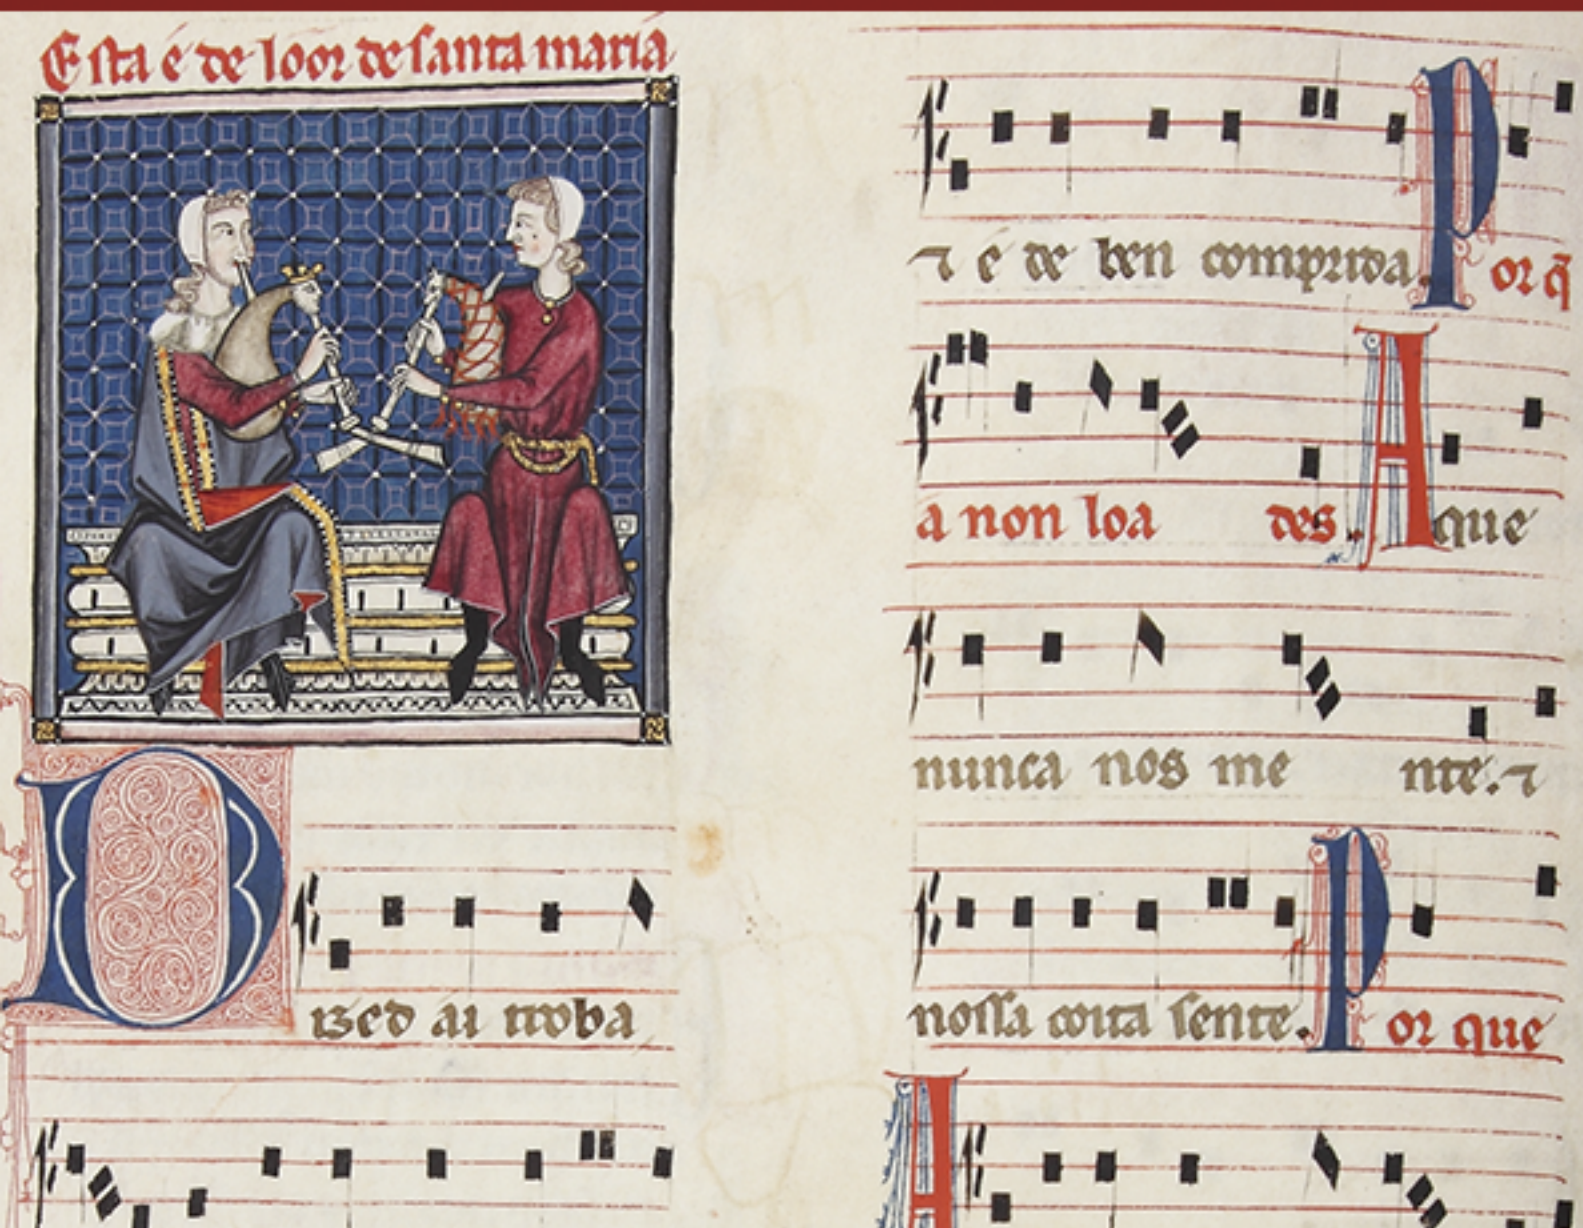 Esta é de loor de santa maria
Dized ai troba
⁊ é de ben comprida. Por q̃
a non loa des. A que
nunca nos me nte. ⁊
nossa coita sente. Por que
A